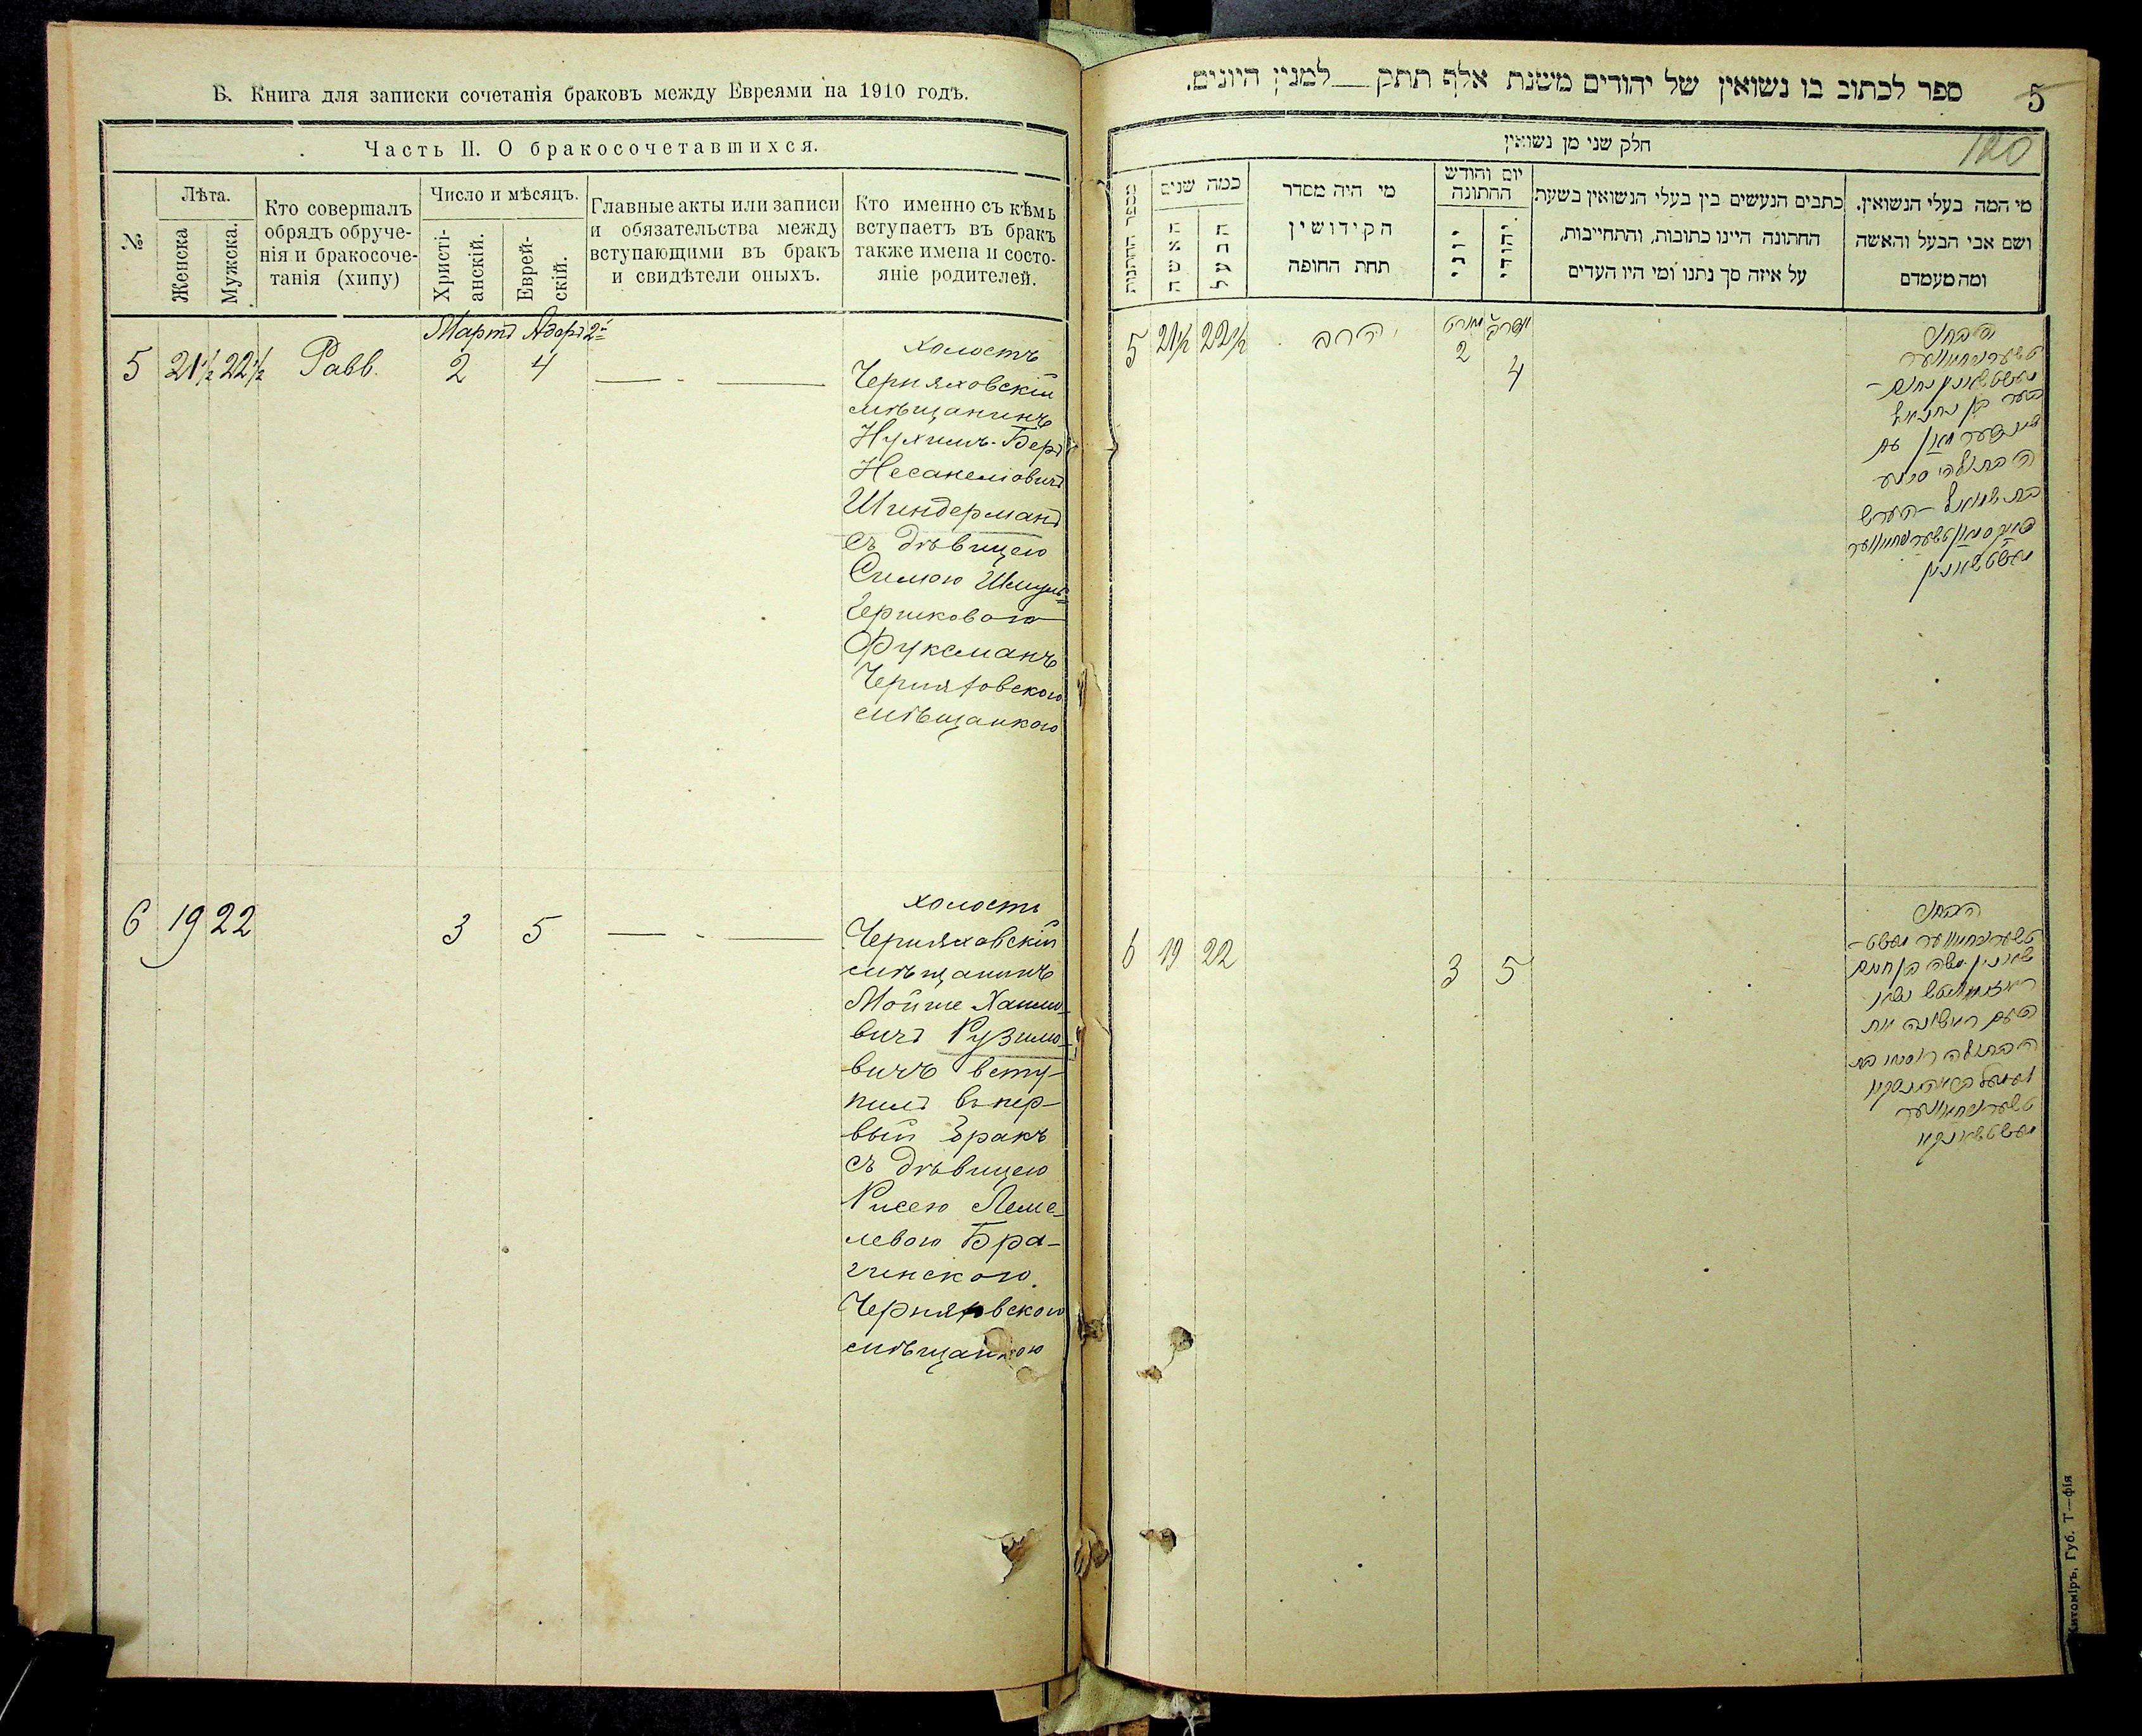 Б. Книга для записки сочетанія браковъ между Евреями на 1910 годъ.
Часть II. О бракосочетавшихся.
№
Лѣта.
Женска
Мужска.
Кто совершалъ
обрядъ обруче-
нія и бракосоче-
танія (хипу)
Число и мѣсяцъ.
Христі-
анскій.
Еврей-
скій.
Главные акты или записи
и обязательства между
вступающими въ бракъ
и свидѣтели оныхъ.
Кто именно съ кѣмъ
вступаетъ въ бракъ
также имена и состо-
яніе родителей.
Мартъ Адоръ 2й
5 21½ 22½ Равв. 2 4
холостъ
Черняховскій
мѣщанинъ
Нухимъ-Беръ
Несанеліовичъ
Шиндерманъ
съ дѣвицею
Симою Шмуль=
Гершковою
Фуксманъ
Черняховскою
мѣщанкою
6 19 22 3 5
холостъ
Черняховскій
мѣщанинъ
Мойше Хаимо-
вичъ Рузимо-
вичъ всту-
пилъ въ пер-
вый бракъ
съ дѣвицею
Рисею Леме-
левою Бра-
гинскою.
Черняховскою
мѣщанкою
ספר לכתוב בו נשואין של יהודים משנת אלף תתק למנין היונים.
5
120
חלק שני מן נשואין
מספר החתנות
כמה שנים
האשה
הבעל
מי היה מסדר
הקידושין
תחת החופה
יום וחודש
החתונה
יוני
יהודי
כתבים הנעשים בין בעלי הנשואין בשעת
החתונה היינו כתובות, והתחייבות,
על איזה סך נתנו ומי היו העדים
מי המה בעלי הנשואין.
ושם אבי הבעל והאשה
ומה מעמדם
5 21½ 22½ הרב 2 4
הבחור
6 19 22 3 5
הבחור
Житоміръ, Губ. Т—фія